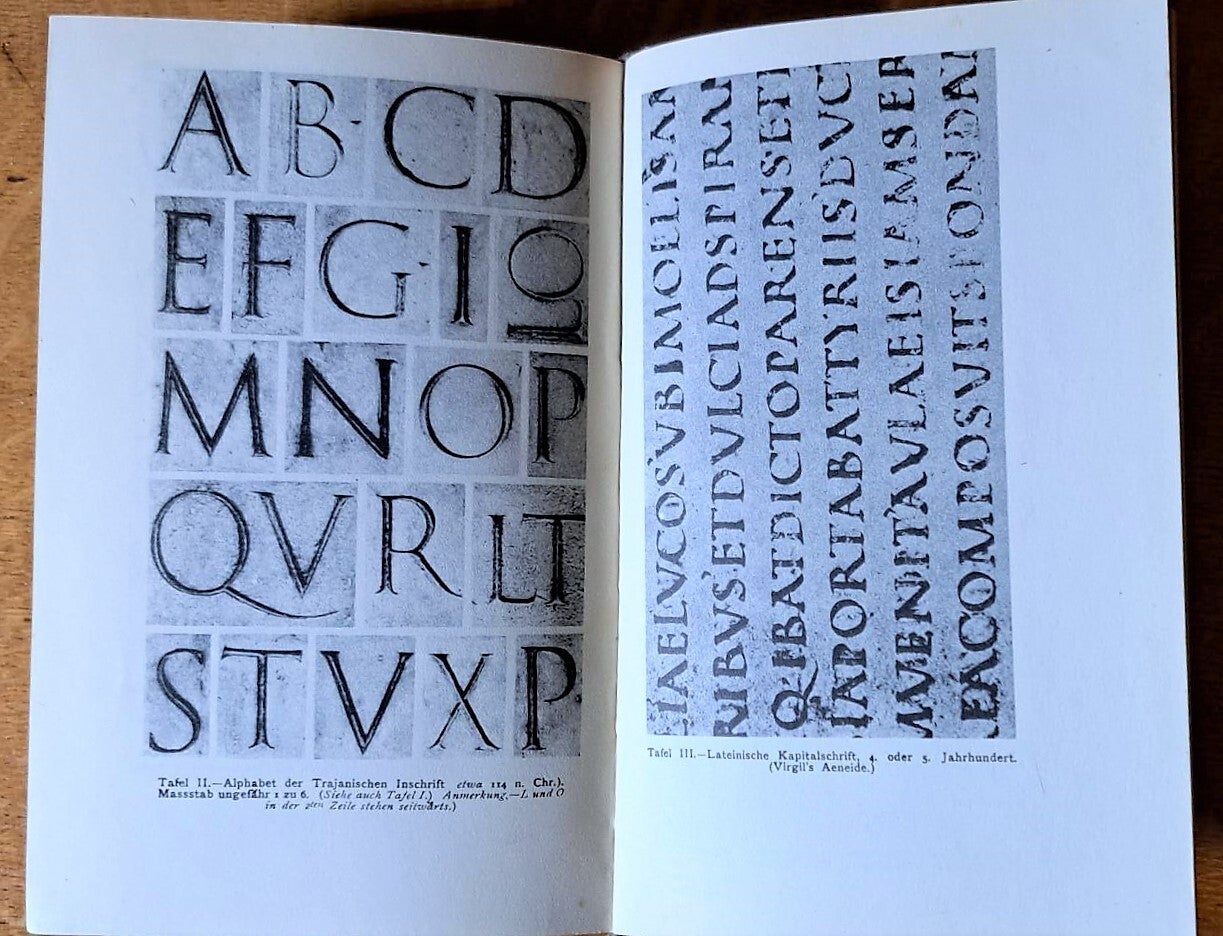 A B· C D
E F G· I LO
M N O P
QV R LT
S T V X P
Tafel II.—Alphabet der Trajanischen Inschrift etwa 114 n. Chr.).
Massstab ungefähr 1 zu 6. (Siehe auch Tafel I.) Anmerkung.—L und O
in der 2ten Zeile stehen seitwärts.)
LIAELVCOSVBIMOLLISAM
RIBVSETDVLCIADSPIRAN
Q·IBATDICTOPARENSETI
IAPORTABATTYRIISDVC
MVENITAVLAEISIAMSER
EACOMPOSVITSPONDAM
Tafel III.—Lateinische Kapitalschrift, 4. oder 5. Jahrhundert.
(Virgil's Aeneide.)